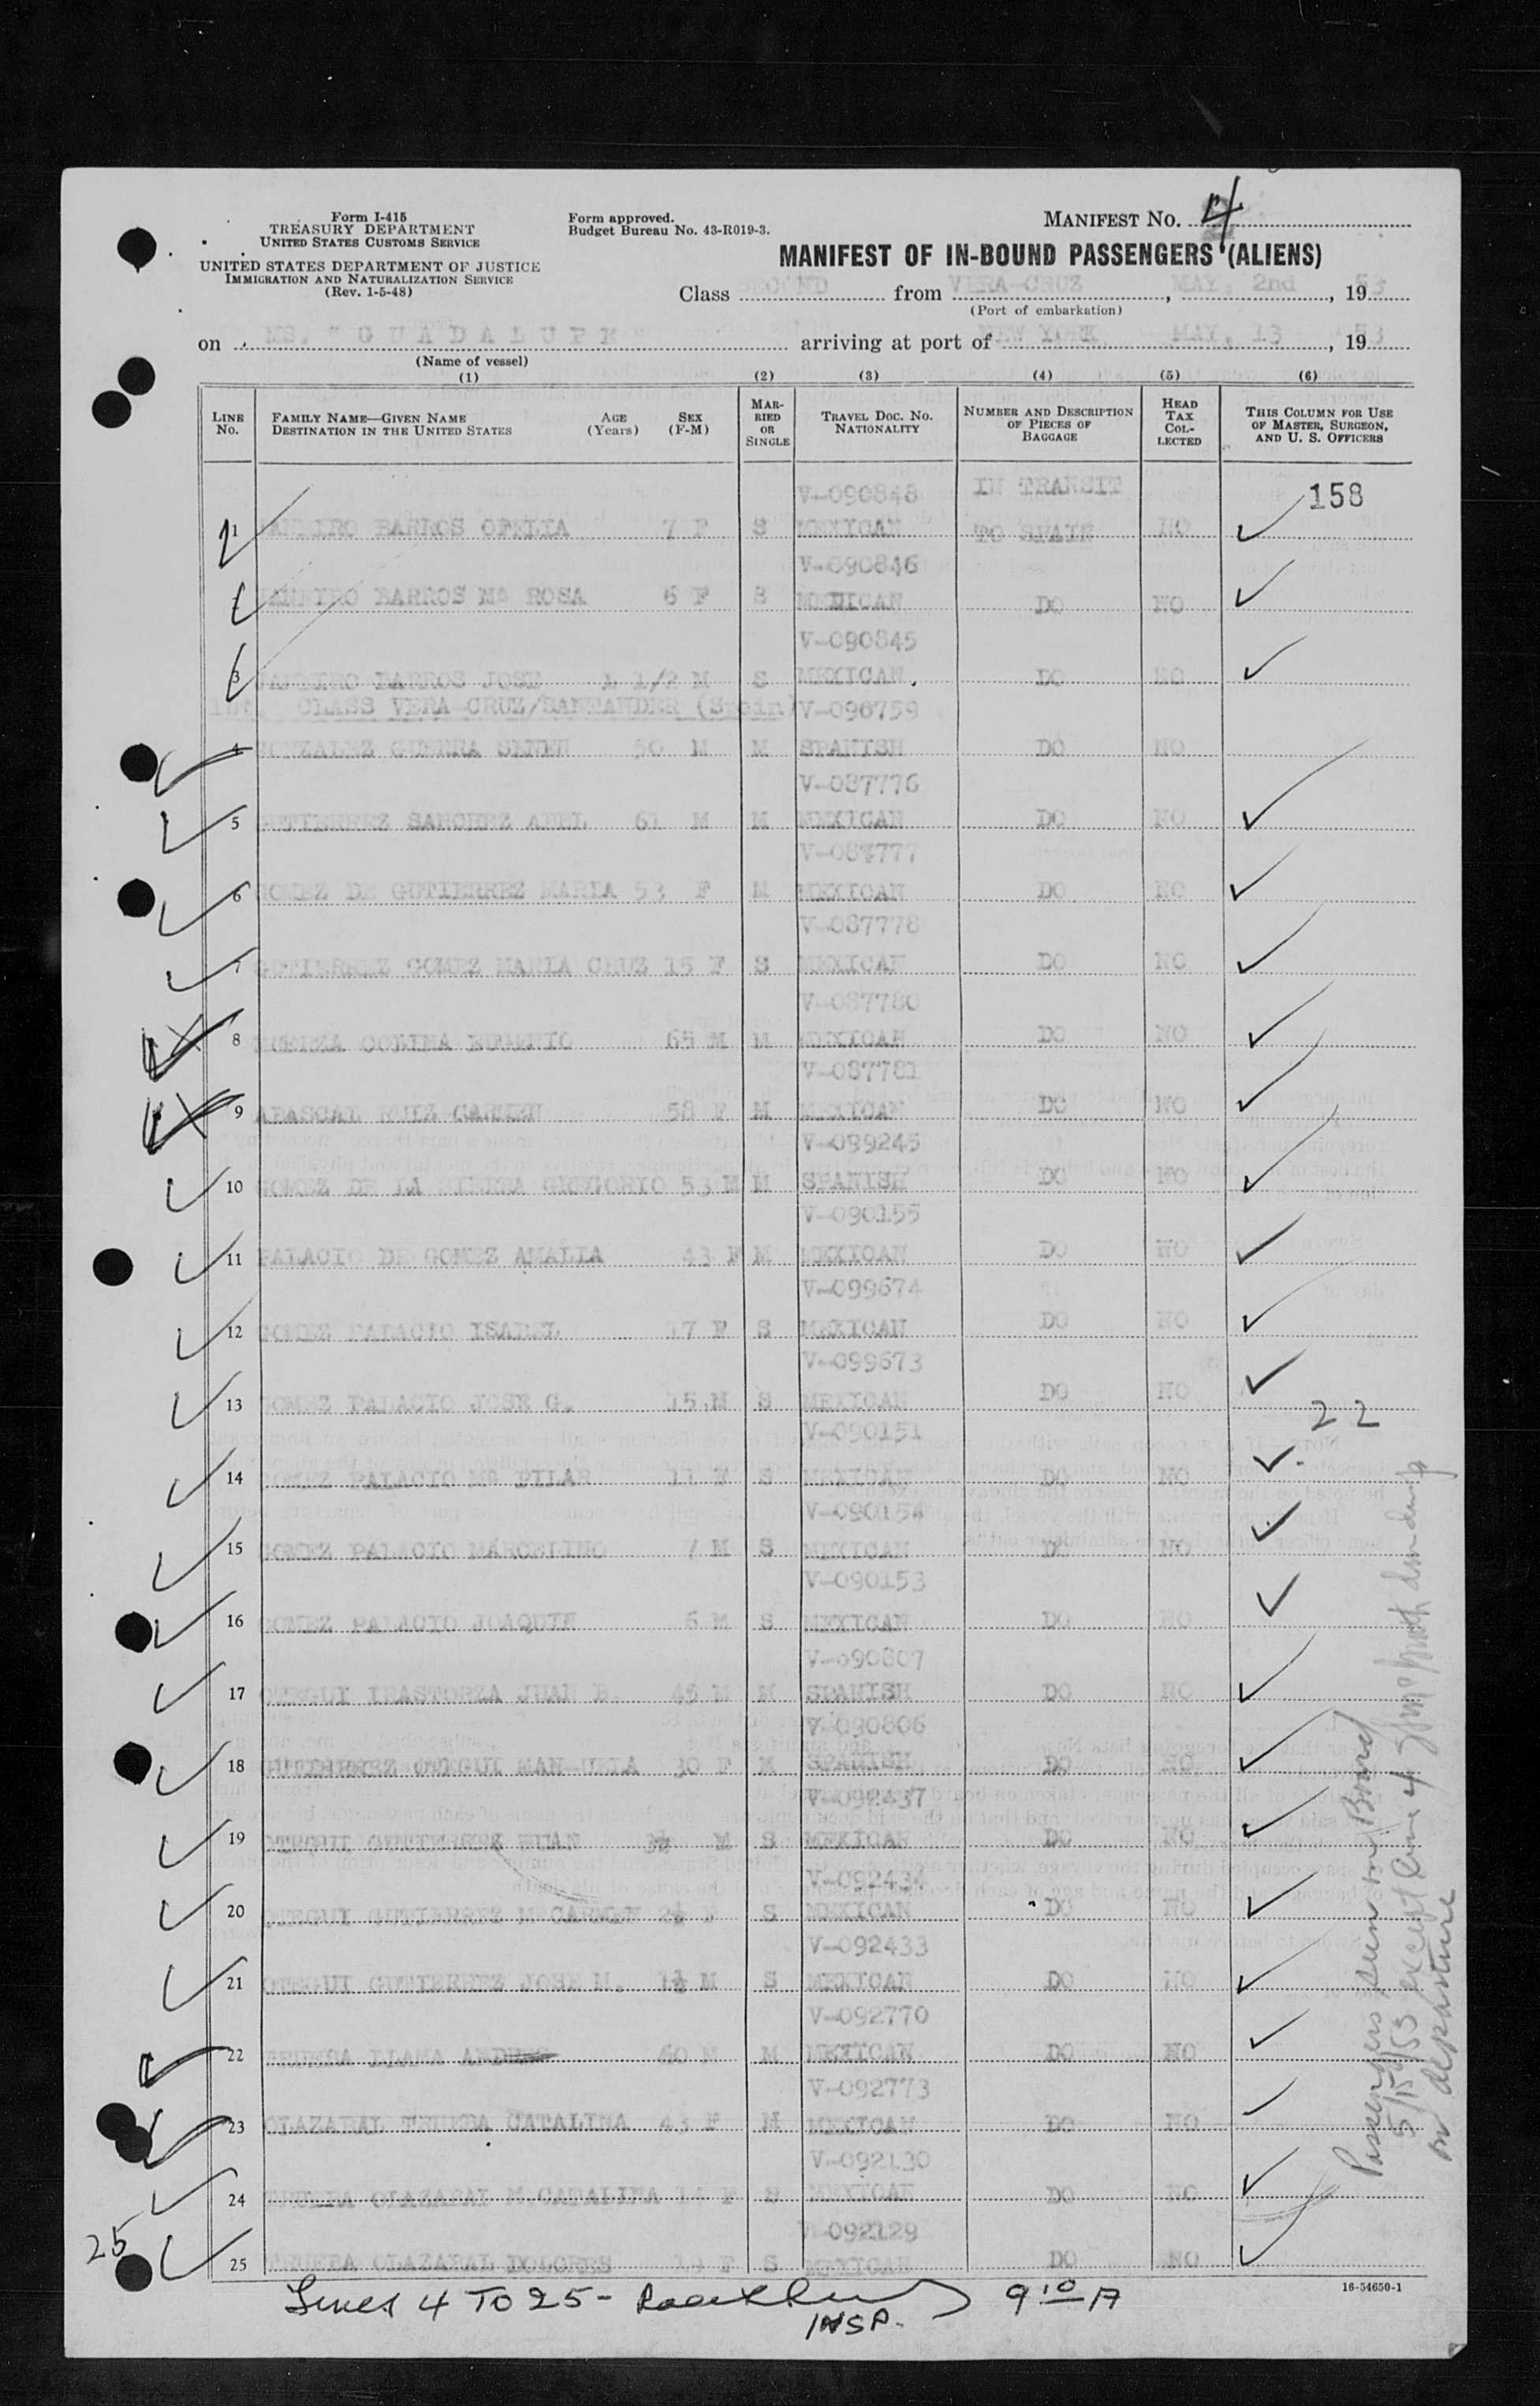 Form I-415
TREASURY DEPARTMENT
UNITED STATES CUSTOMS SERVICE
UNITED STATES DEPARTMENT OF JUSTICE
IMMIGRATION AND NATURALIZATION SERVICE
(Rev. 1-5-48)
Form approved.
Budget Bureau No. 43-R019-3.
MANIFEST NO. 4
MANIFEST OF IN-BOUND PASSENGERS (ALIENS)
Class SECOND from VERA-CRUZ, MAY, 2nd, 1953
(Port of embarkation)
on MS. "GUADALUPE" arriving at port of NEW YORK MAY, 13, 1953
(Name of vessel)
(1) (2) (3) (4) (5) (6)
LINE No. FAMILY NAME—GIVEN NAME DESTINATION IN THE UNITED STATES AGE (Years) SEX (F-M) MARRIED OR SINGLE TRAVEL DOC. NO. NATIONALITY NUMBER AND DESCRIPTION OF PIECES OF BAGGAGE HEAD TAX COLLECTED THIS COLUMN FOR USE OF MASTER, SURGEON, AND U. S. OFFICERS
V-090848 IN TRANSIT 158
1 BARROS OFELIA 7 F S MEXICAN TO SPAIN NO
V-090846
BARROS Mª ROSA 6 F S MEXICAN DO NO
V-090845
3 BARROS JOSE 1/2 M S MEXICAN. DO NO
CLASS VERA CRUZ/SANTANDER (Spain) V-096759
4 GONZALEZ GUERRA SENEN 50 M M SPANISH DO NO
V-087776
5 GUTIERREZ SANCHEZ ABEL 61 M M MEXICAN DO NO
V-087777
6 GOMEZ DE GUTIERREZ MARIA 53 F M MEXICAN DO NO
V-087778
7 GUTIERREZ GOMEZ MARIA CRUZ 15 F S MEXICAN DO NO
V-087780
8 65 M M MEXICAN DO NO
V-087781
9 ABASCAL RUIZ CARMEN 58 F M MEXICAN DO NO
V-099245
10 GOMEZ DE LA GREGORIO 53 M M SPANISH DO NO
V-090155
11 PALACIO DE GOMEZ AMALIA 43 F M MEXICAN DO NO
V-099674
12 GOMEZ PALACIO ISABEL 17 F S MEXICAN DO NO
V-099673
13 GOMEZ PALACIO JOSE G. 15 M S MEXICAN DO NO
22
V-090151
14 GOMEZ PALACIO Mª PILAR 11 F S MEXICAN DO NO
V-090154
15 GOMEZ PALACIO MARCELINO 7 M S MEXICAN DO NO
V-090153
16 GOMEZ PALACIO JOAQUIN 6 M S MEXICAN DO NO
V-090807
17 OTEGUI IRASTORZA JUAN B. 45 M M SPANISH DO NO
V-090806
18 GUTIERREZ OTEGUI MAN-UELA 30 F M SPANISH DO NO
V-092437
19 OTEGUI GUTIERREZ JUAN M S MEXICAN DO NO
V-092434
20 OTEGUI GUTIERREZ M CARMEN 2½ F S MEXICAN DO NO
V-092433
21 OTEGUI GUTIERREZ JOSE M. 1½ M S MEXICAN DO NO
V-092770
22 LLAMA 60 M M MEXICAN DO NO
V-092773
23 OLAZABAL CATALINA 43 F M MEXICAN DO NO
V-092130
24 OLAZABAL M. CATALINA 14 F S MEXICAN DO NO
092129
25 OLAZABAL DOLORES 13 F S MEXICAN DO NO
25
Passengers seen on Board
5/15/53 except line 4
on departure
16-54650-1
Lines 4 TO 25 - 9 10 A
INSP.